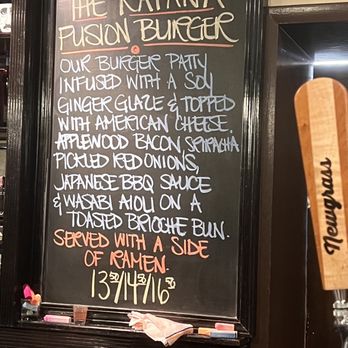 THE KATANA
FUSION BURGER
OUR BURGER PATTY
INFUSED WITH A SOY
GINGER GLAZE & TOPPED
WITH AMERICAN CHEESE.
APPLEWOOD BACON SRIRACHA
PICKLED RED ONIONS,
JAPANESE BBQ SAUCE
& WASABI AIOLI ON A
TOASTED BRIOCHE BUN.
SERVED WITH A SIDE
OF RAMEN.
13.50/14.50/16.50
Newgrass